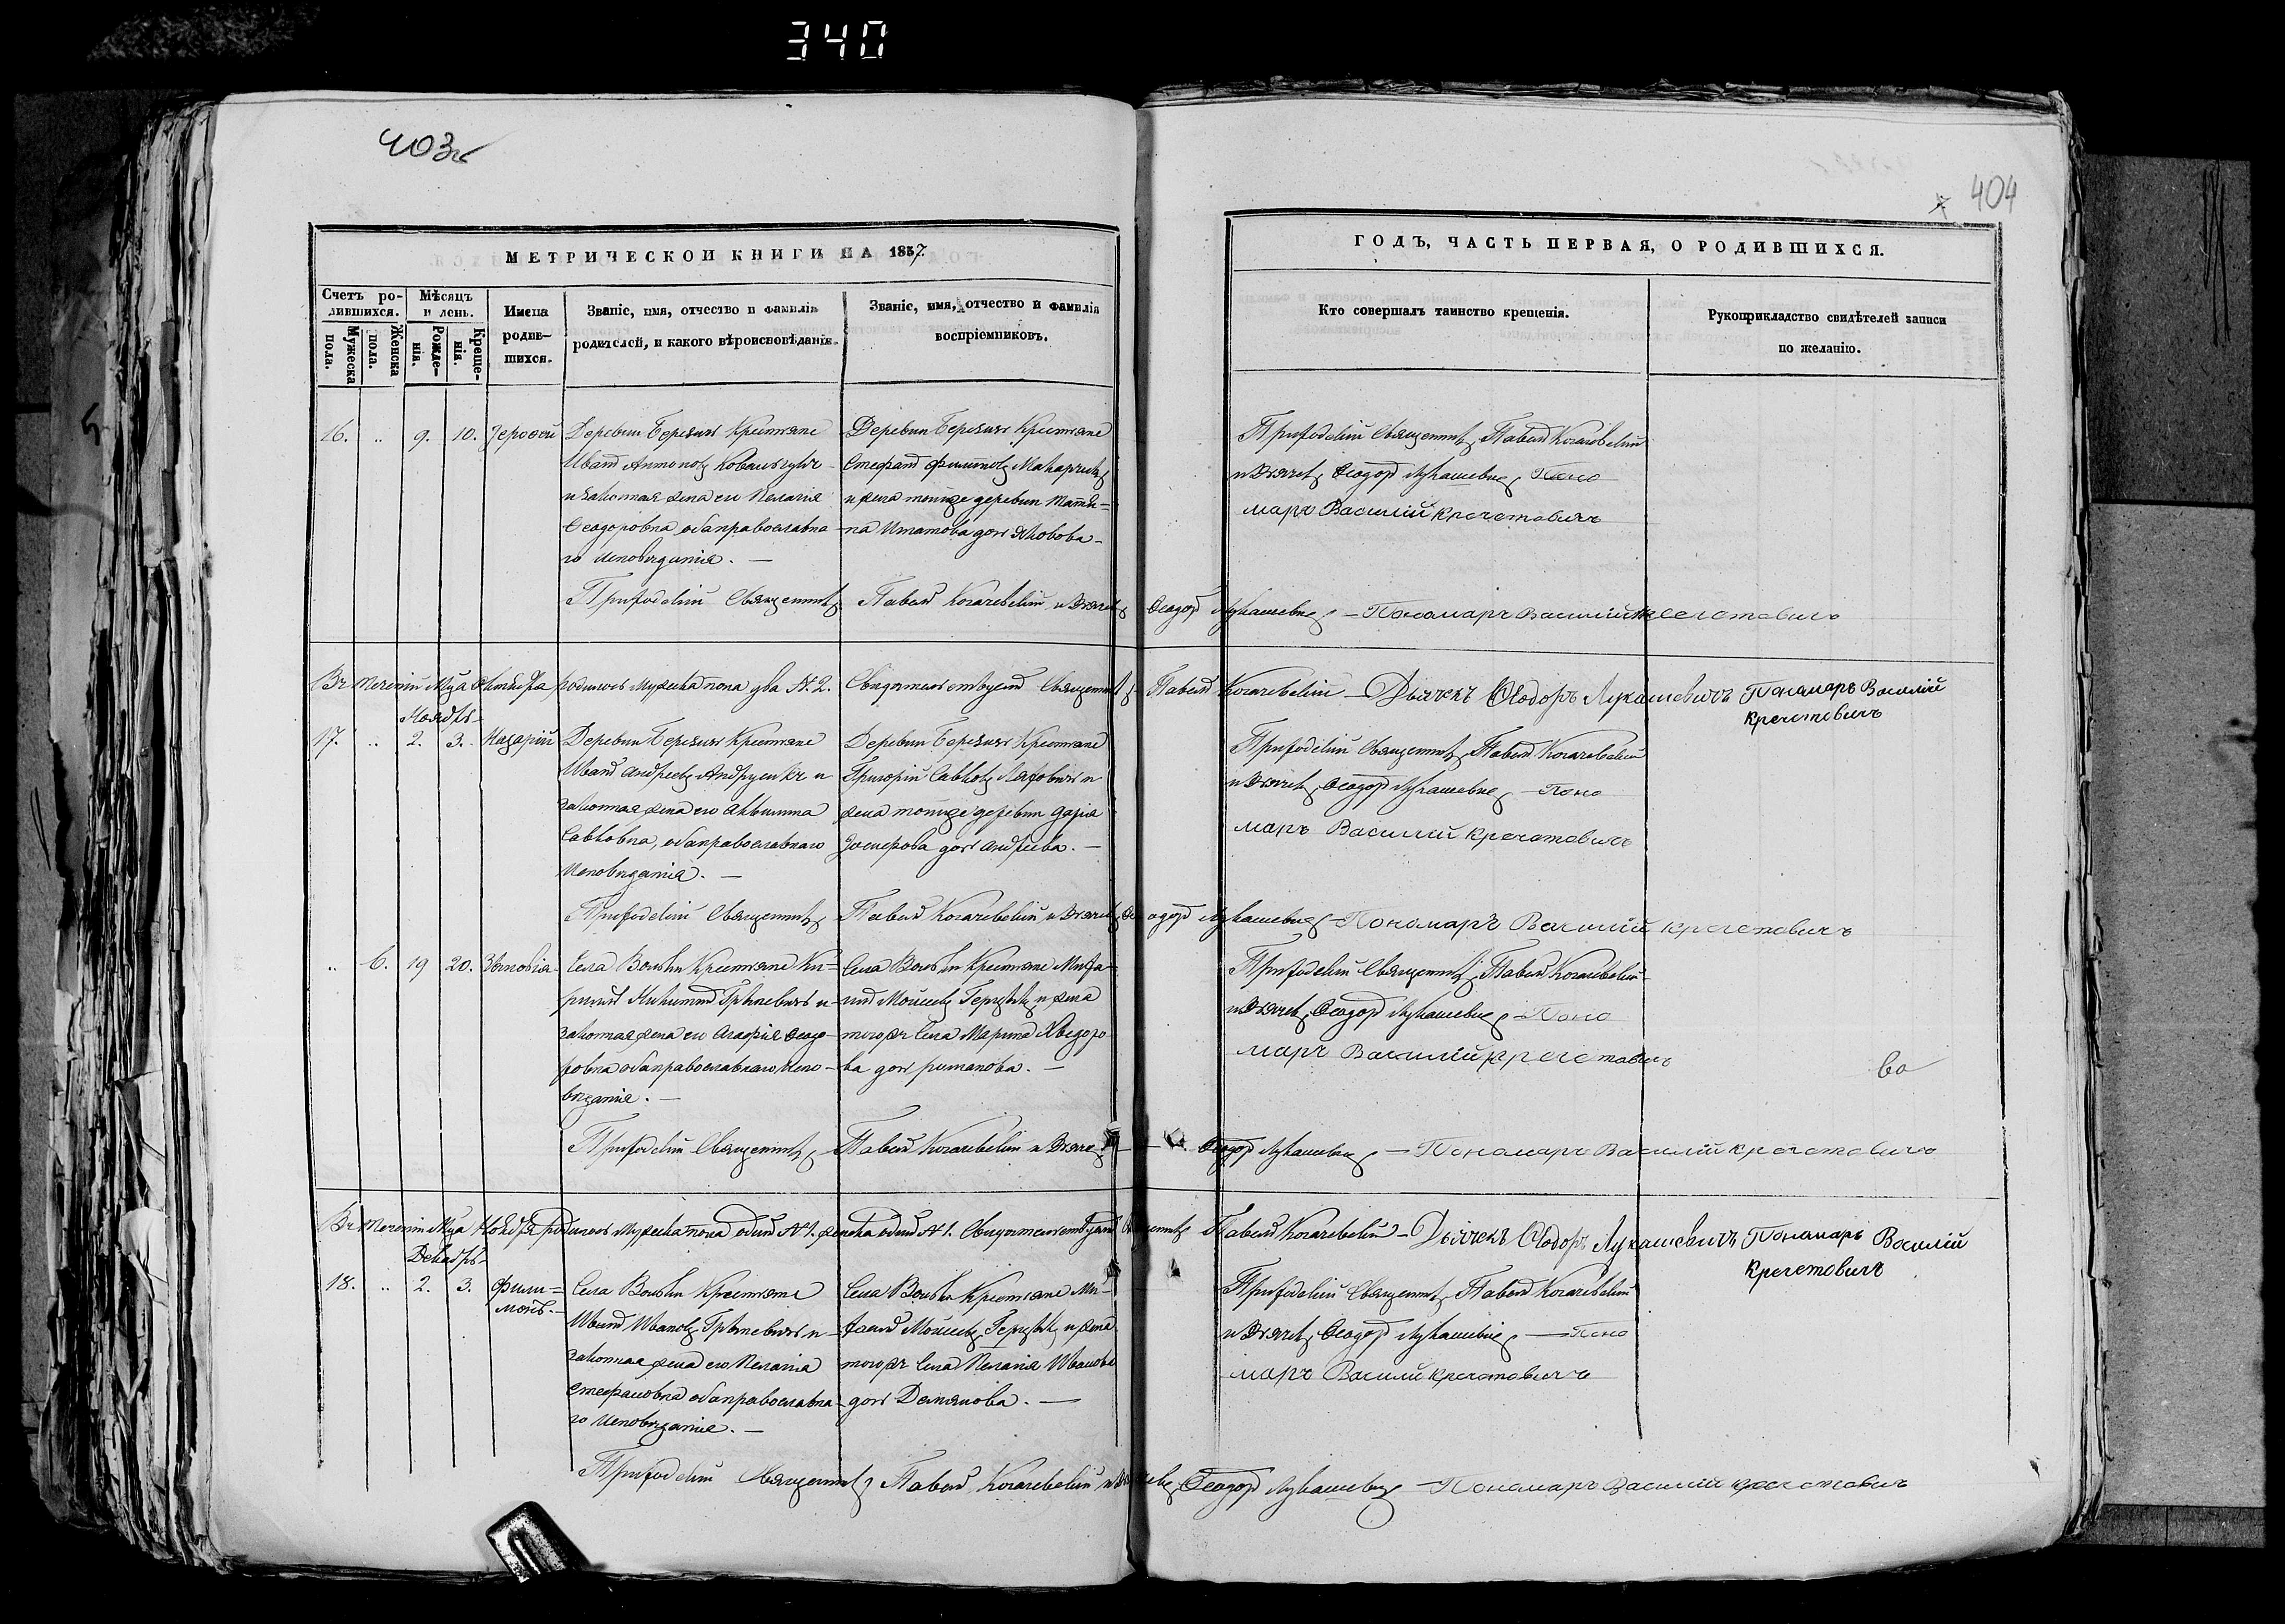 340
403
404
МЕТРИЧЕСКОЙ КНИГИ НА 1857.
ГОДЪ, ЧАСТЬ ПЕРВАЯ, О РОДИВШИХСЯ.
Счетъ ро-
дившихся.
Мужеска
пола.
Женска
пола.
Мѣсяцъ
и день.
Рожде-
нія.
Креще-
нія.
Имена
родив-
шихся.
Званіе, имя, отчество и фамилія
родителей, и какого вѣроисповѣданія.
Званіе, имя, отчество и фамилія
воспріемниковъ.
Кто совершалъ таинство крещенія.
Рукоприкладство свидѣтелей записи
по желанію.
16. „ 9. 10. Іерофей
Деревни Крестьяне
Иванъ Антоновъ
и законная жена его Пелагія
Феодоровна оба православна
го исповѣданія. —
Деревни Крестьяне
Стефанъ Филиповъ
и жена тойже деревни
Приходскій Священникъ Павелъ
и Дьячекъ Феодоръ Лукашевичъ Поно
марь Василій Кречетовичъ
Приходскій Священникъ Павелъ и Дьячекъ Феодоръ Лукашевичъ — Пономарь Василій Кречетовичъ
Въ теченіи М-ца Октября родилось Мужеска пола два № 2. Свидѣтельствуемъ Священникъ Павелъ — Дьячекъ Феодоръ Лукашевичъ Пономарь Василій
Кречетовичъ
Ноябрь
17. „ 2. 3. Назарій
Деревни Крестьяне
Иванъ Андреевъ и
законная жена его Акилина
Савковна, оба православнаго
исповѣданія. —
Деревни Крестьяне
Григорій Савковъ и
жена тойже деревни Дарія
дочь Андреева. —
Приходскій Священникъ Павелъ
и Дьячекъ Феодоръ Лукашевичъ — Поно
марь Василій Кречетовичъ
Приходскій Священникъ Павелъ и Дьячекъ Феодоръ Лукашевичъ — Пономарь Василій Кречетовичъ
„ 6. 19 20. Зѣновія
Села Крестьяне Ки=
Никитинъ и
законная жена его Агафія Феодо
ровна оба православнаго испо
вѣданія. —
Села Крестьяне Миха
илъ Моисеевъ и жена
тогожъ Села Марина
ва дочь Романова. —
Приходскій Священникъ Павелъ
и Дьячекъ Феодоръ Лукашевичъ — Поно
марь Василій Кречетовичъ
во
Приходскій Священникъ Павелъ и Дьячекъ Феодоръ Лукашевичъ — Пономарь Василій Кречетовичъ
Въ теченіи М-ца Ноября родилось Мужеска пола одинъ № 1. женска одинъ № 1. Свидѣтельствуемъ Священникъ Павелъ — Дьячекъ Феодоръ Лукашевичъ Пономарь Василій
Кречетовичъ
Декабрь
18. „ 2. 3. Фили=
монъ. —
Села Крестьяне
Иванъ Ивановъ и
законная жена его Пелагія
Стефановна оба православна
го исповѣданія. —
Села Крестьяне Ми-
хаилъ Моисеевъ и жена
тогожъ Села Пелагія Иванова
дочь Демянова. —
Приходскій Священникъ Павелъ
и Дьячекъ Феодоръ Лукашевичъ — Поно
марь Василій Кречетовичъ
Приходскій Священникъ Павелъ и Дьячекъ Феодоръ Лукашевичъ — Пономарь Василій Кречетовичъ